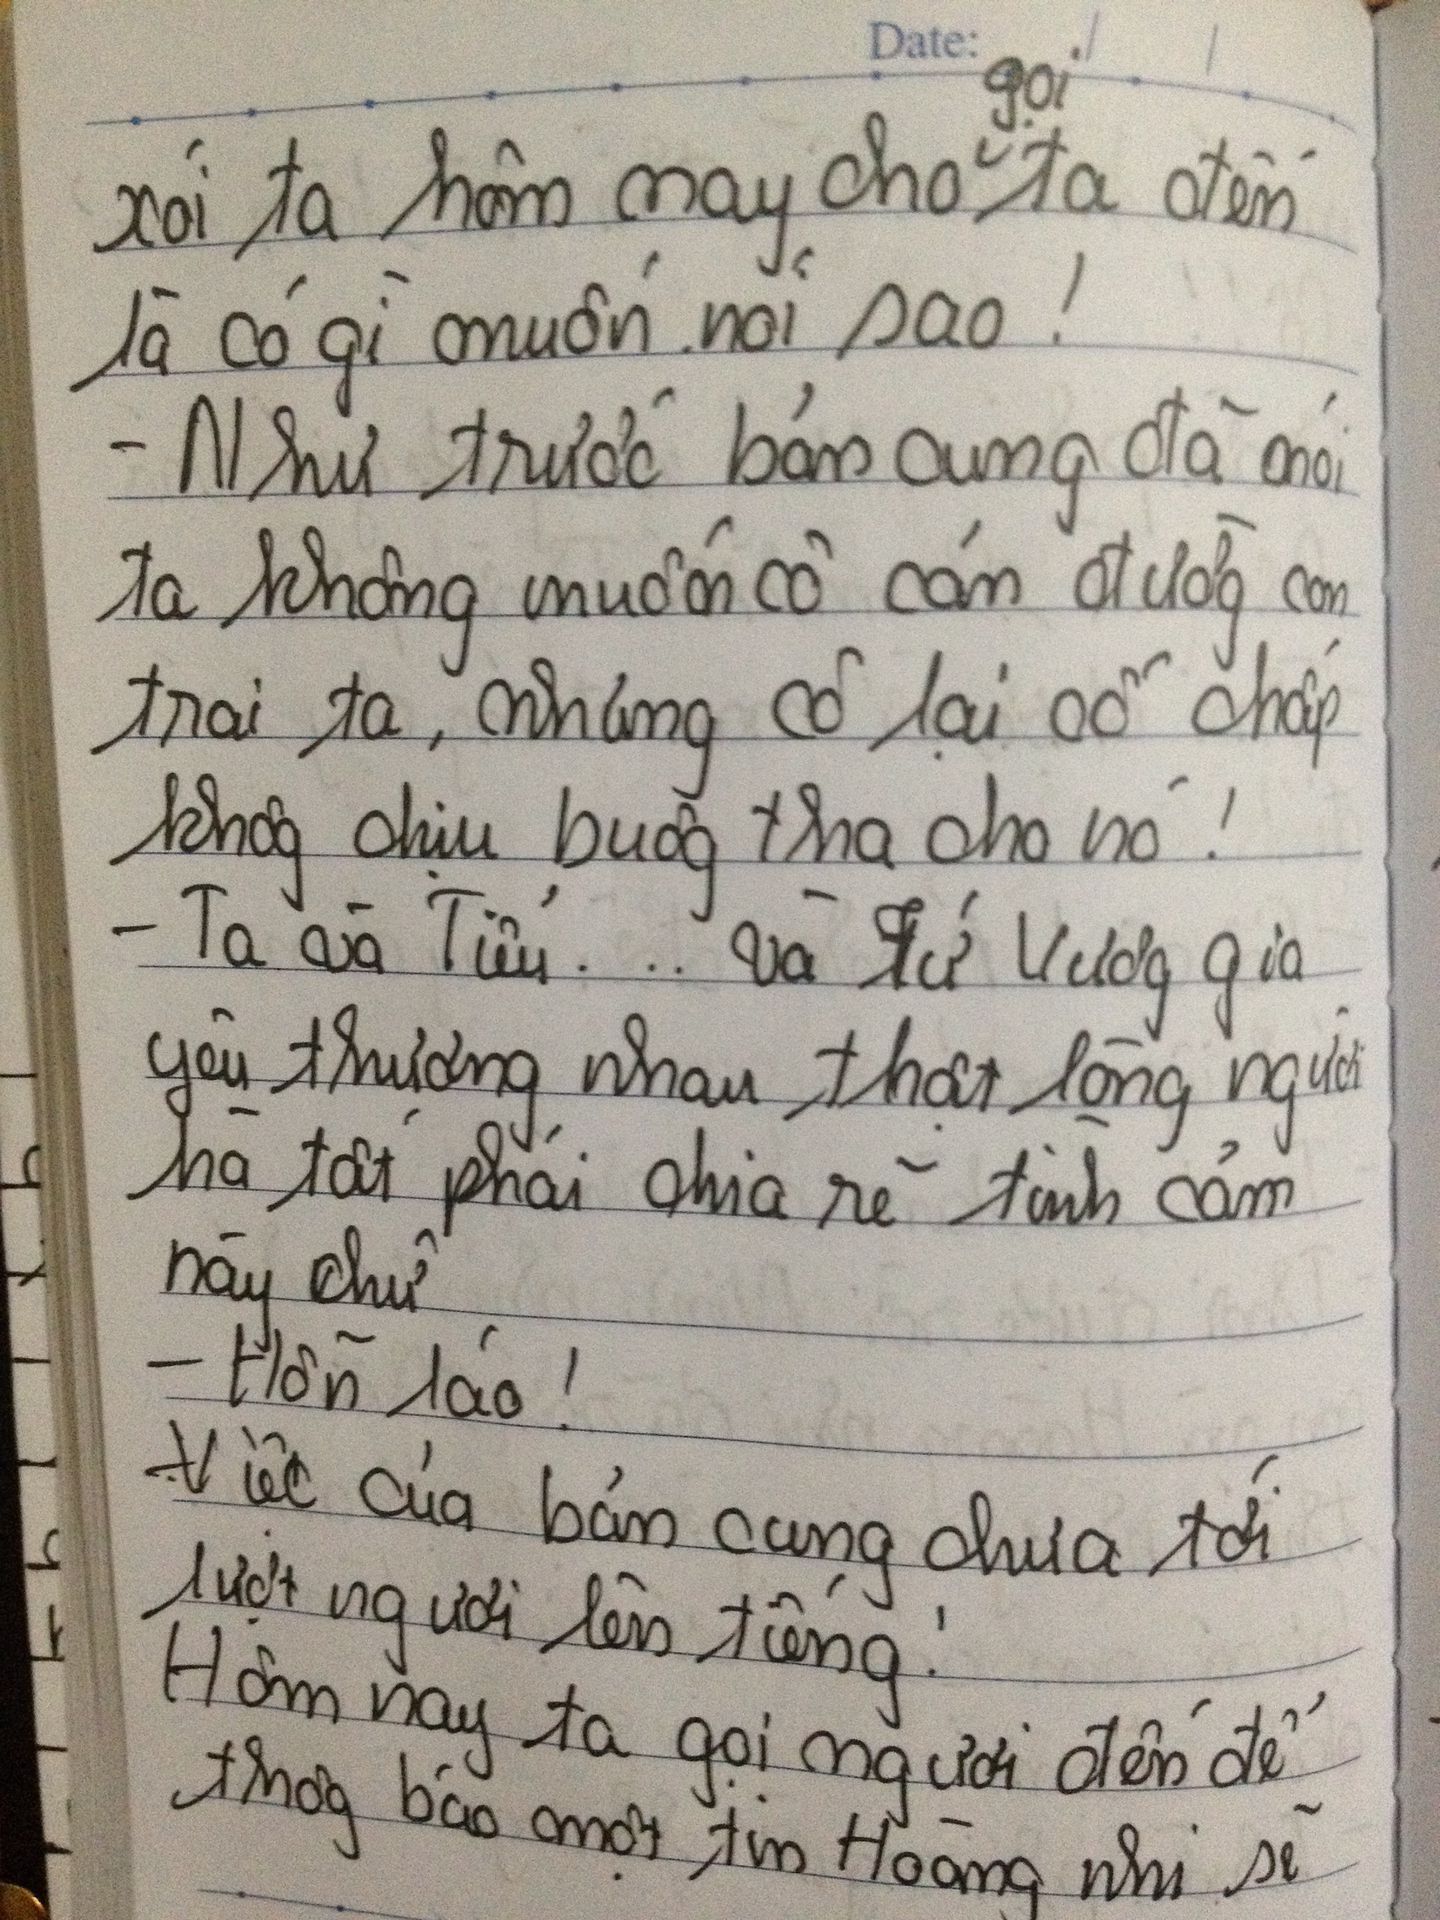 Date: / /
gọi
xói ta hôm nay cho ta đến
là có gì muốn nói sao!
- Như trước bản cung đã nói
ta không muốn cô cản đườg con
trai ta, nhưng cô lại cố chấp
khôg chịu buôg tha cho nó!
- Ta và Tiểu . . . và Tứ Vươg gia
yêu thương nhau thật lòng người
hà tất phải chia rẽ tình cảm
này chứ
- Hỗn láo!
Việc của bản cung chưa tới
lượt ngươi lên tiếng!
Hôm nay ta gọi ngươi đến để
thôg báo một tin Hoàng nhi sẽ